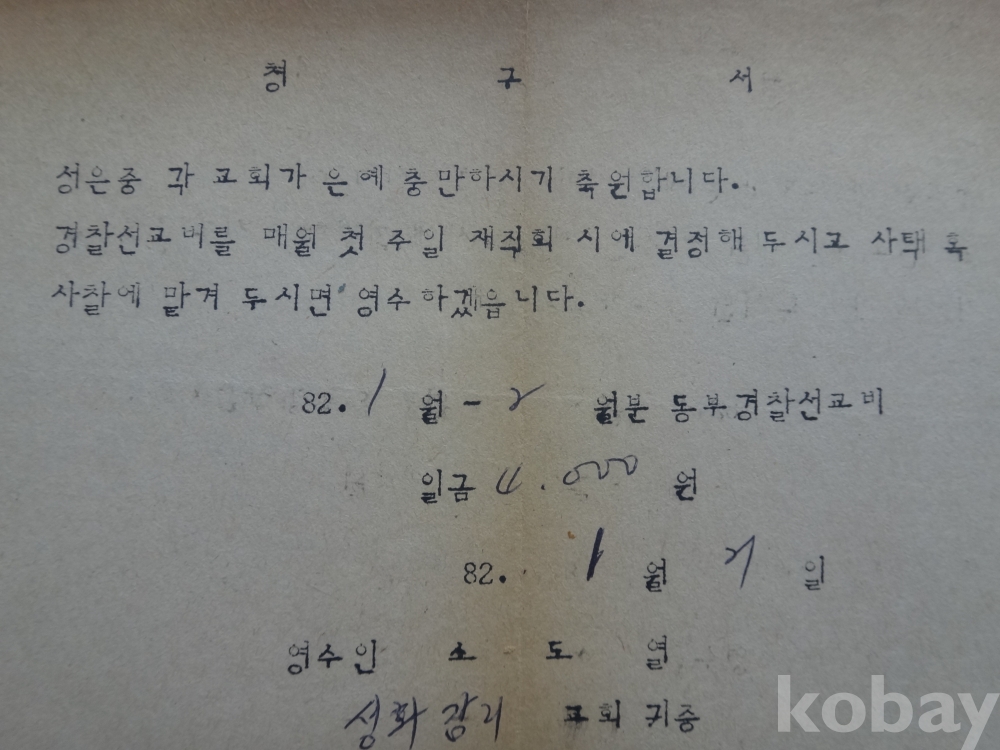 청 구 서
성은중 각 교회가 은예 충만하시기 축원합니다.
경찰선교비를 매월 첫 주일 재직회 시에 결정해 두시고 사택 혹
사찰에 맡겨 두시면 영수하겠읍니다.
82. 1 월 - 2 월분 동부경찰선교비
일금 4.000 원
82. 1 월 21 일
영수인 소 도 열
성화감리 교회 귀중
kobay